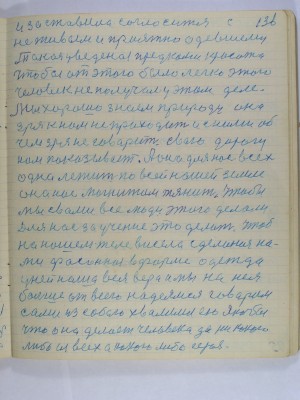 и заставила согласится с 136
не живым и приятно одевшему
Такая уведена предками красота
чтобы от этого было легко этого
человек не получил у этом деле.
Мы хорошо знаем природу она
зря к нам не приходит и с ними об
чем зря не говорит. свою дорогу
нам показывает. А она для нас всех
одна летит по всей нашей земле
она нас магнитом тянит. Чтобы
мы с вами все люди этого делали
для нас заучение это делать. Чтоб
на нашем теле висела сделаная на-
ми фасонная в форме одежда
у ней наша вся вера и мы на нея
больше от всего надеямся говорим
сами из собою хвалимся ею якобы
что она делает человека за
либо от всех а какого либо героя.